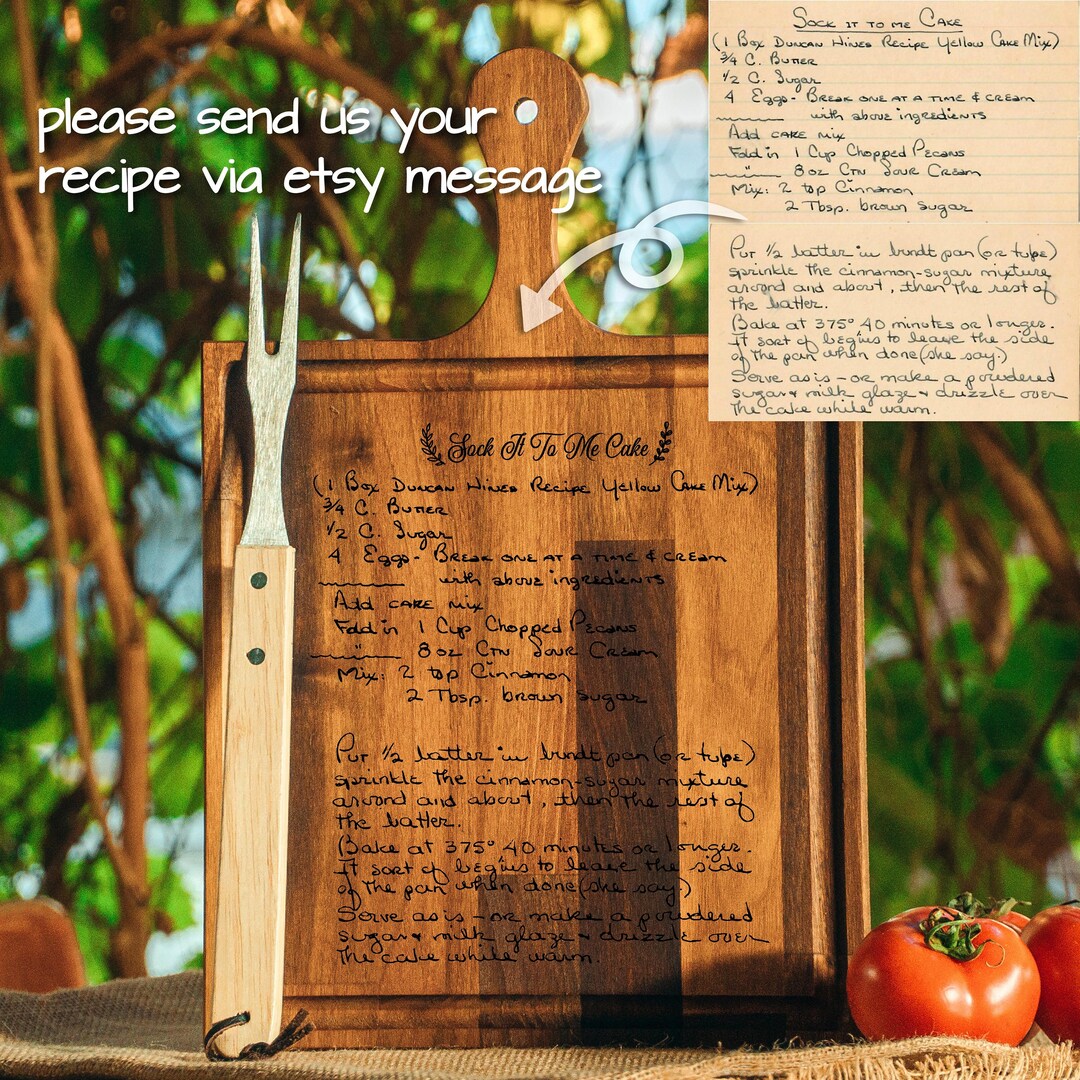 please send us your
recipe via etsy message
Sock it to me Cake
(1 Box Duncan Hines Recipe Yellow Cake Mix)
3/4 C. Butter
1/2 C. Sugar
4 Eggs - Break one at a time & cream
with above ingredients
Add cake mix
Fold in 1 Cup Chopped Pecans
" 8 oz Ctn Sour Cream
Mix: 2 tsp Cinnamon
2 Tbsp. brown sugar
Put 1/2 batter in bundt pan (or tube)
sprinkle the cinnamon-sugar mixture
around and about, then the rest of
the batter.
Bake at 375° 40 minutes or longer.
It sort of begins to leave the side
of the pan when done (she say.)
Serve as is - or make a powdered
sugar & milk glaze & drizzle over
the cake while warm.
Sock It To Me Cake
(1 Box Duncan Hines Recipe Yellow Cake Mix)
3/4 C. Butter
1/2 C. Sugar
4 Eggs - Break one at a time & cream
with above ingredients
Add cake mix
Fold in 1 Cup Chopped Pecans
" 8 oz Ctn Sour Cream
Mix: 2 tsp Cinnamon
2 Tbsp. brown sugar
Put 1/2 batter in bundt pan (or tube)
sprinkle the cinnamon-sugar mixture
around and about, then the rest of
the batter.
Bake at 375° 40 minutes or longer.
It sort of begins to leave the side
of the pan when done (she say.)
Serve as is - or make a powdered
sugar & milk glaze & drizzle over
the cake while warm.